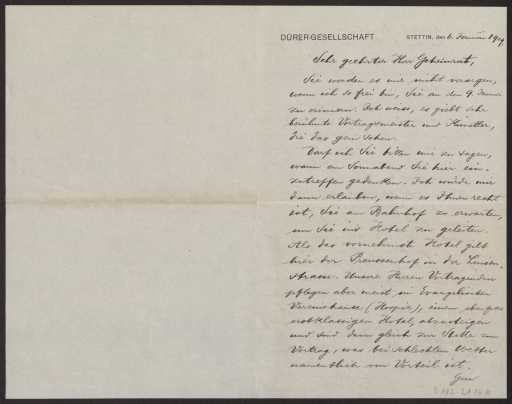 DÜRER-GESELLSCHAFT STETTIN, den 6. Januar 1909
Sehr geehrter Herr Geheimrat,
Sie werden es mir nicht versagen,
wenn ich so frei bin, Sie an den 9. Januar
zu erinnern. Ich weiss, es giebt sehr
berühmte Vortragsmeister und Künstler,
die das gern sehen.
Darf ich Sie bitten mir zu sagen,
wann am Sonnabend Sie hier ein-
zutreffen gedenken. Ich würde mir
dann erlauben, wenn es Ihnen recht
ist, Sie am Bahnhof zu erwarten,
um Sie ins Hotel zu geleiten.
Als das vornehmste Hotel gilt
hier der Preussenhof in der Luisen-
strasse. Unsere Herren Vortragenden
pflegen aber meist im Evangelischen
Vereinshause (Hospiz), einem
erstklassigen Hotel, abzusteigen
und sind dann gleich zur Stelle zum
Vortrag, was bei schlechtem Wetter
namentlich von Vorteil ist.